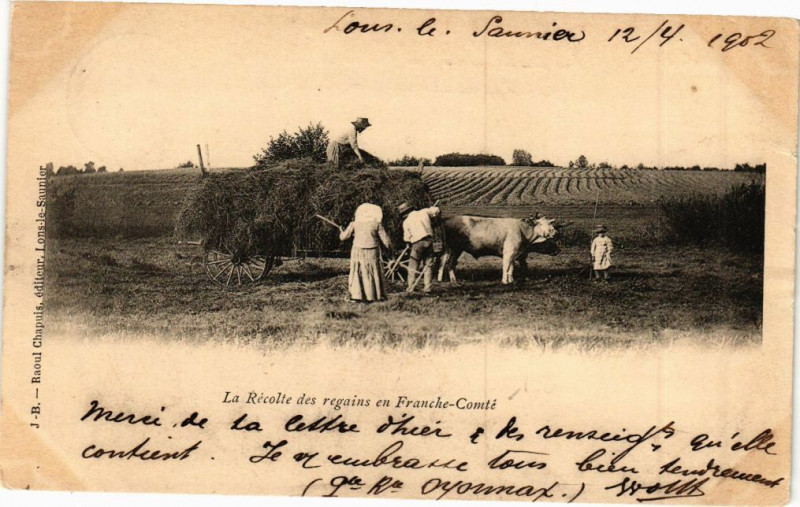 Lons-le-Saunier 12/4. 1902
J-B. — Raoul Chapuis, éditeur, Lons-le-Saunier
La Récolte des regains en Franche-Comté
Merci de ta lettre d'hier & des renseigts qu'elle
contient. Je vs embrasse tous bien tendrement
Oyonnax.)